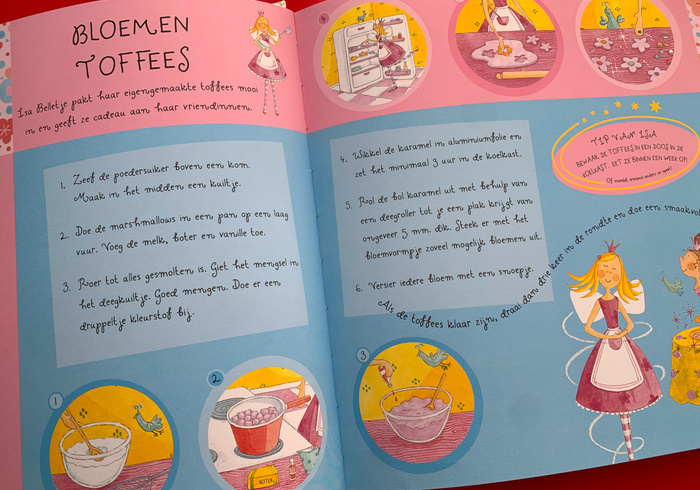 BLOEMEN
TOFFEES
Isa Belletje pakt haar eigengemaakte toffees mooi
in en geeft ze cadeau aan haar vriendinnen.
1. Zeef de poedersuiker boven een kom.
Maak in het midden een kuiltje.
2. Doe de marshmallows in een pan op een laag
vuur. Voeg de melk, boter en vanille toe.
3. Roer tot alles gesmolten is. Giet het mengsel in
het deegkuiltje. Goed mengen. Doe er een
druppeltje kleurstof bij.
1
2
BOTER
4
4. Wikkel de karamel in aluminiumfolie en
zet het minimaal 3 uur in de koelkast.
5. Rol de bol karamel uit met behulp van
een deegroller tot je een plak krijgt van
ongeveer 5 mm. dik. Steek er met het
bloemvormpje zoveel mogelijk bloemen uit.
6. Versier iedere bloem met een snoepje.
TIP VAN ISA
BEWAAR DE TOFFEES IN EEN DOOS IN DE
KOELKAST. EET ZE BINNEN EEN WEEK OP!
Als de toffees klaar zijn, draai dan drie keer in de rondte en doe een
3